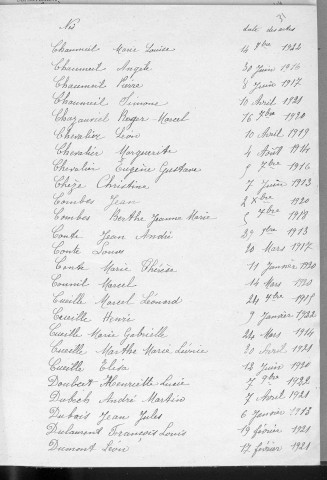 Nés date des actes
Chaumeil Marie Louise 14 9bre 1922
Chaumeil Angèle 30 Juin 1916
Chaumeil Pierre 8 Juin 1917
Chaumeil Simone 10 Avril 1921
Chazauviel Roger Marcel 16 7bre 1920
Chevalier Léon 10 Avril 1919
Chevalier Marguerite 4 Août 1914
Chevalier Eugène Gustave 5 7bre 1916
Chèze Christine 7 Juin 1913
Combes Jean 2 Xbre 1920
Combes Berthe Jeanne Marie 5 Xbre 1918
Conte Jean André 1913
Conte Louis 20 Mars 1917
Conte Marie Thérèse 11 Janvier 1920
Connil Marcel 14 Mars 1920
Cueille Marcel Léonard 24 7bre 1915
Cueille Henri 9 Janvier 1922
Cueille Marie Gabrielle 24 Mars 1914
Cueille Marthe Marie 20 Avril 1921
Cueille Elisa 12 Juin 1920
Doubcet Henriette Lucie 7 9bre 1921
Dubech André Martin 7 Avril 1921
Dubois Jean Jules 6 Janvier 1913
Dulaurent François Louis 19 février 1921
Dumont Léon 17 février 1921